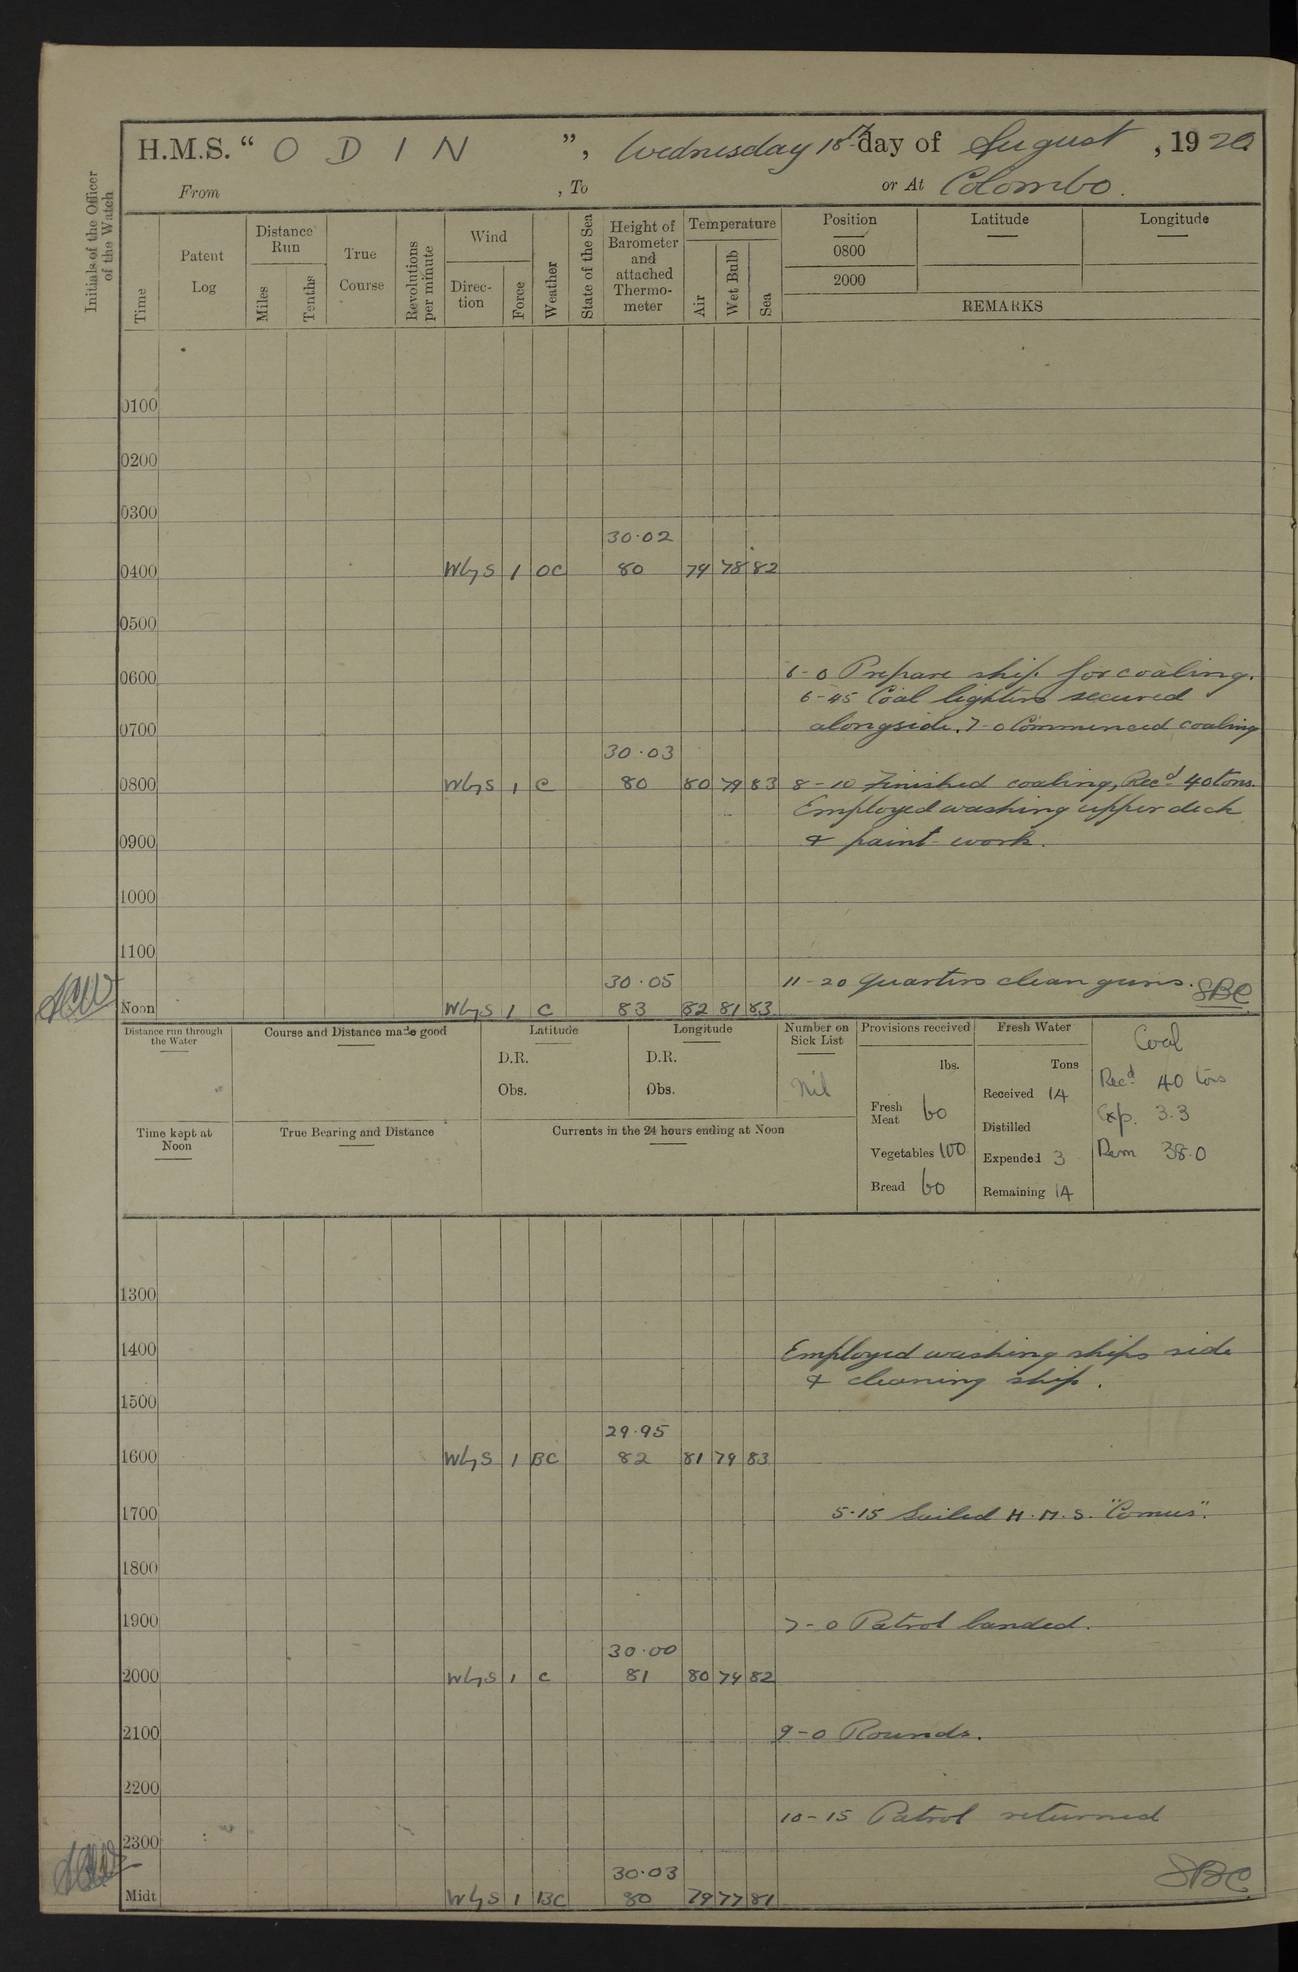 H.M.S. “ODIN”, Wednesday 18th day of August, 1920.
From , To or At Colombo.
Initials of the Officer of the Watch
Time
Patent Log
Distance Run
Miles
Tenths
True Course
Revolutions per minute
Wind
Direction
Force
Weather
State of the Sea
Height of Barometer and attached Thermometer
Temperature
Air
Wet Bulb
Sea
Position Latitude Longitude
0800
2000
REMARKS
0100
0200
0300
30.02
0400 W by S 1 OC 80 79 78 82
0500
0600 6-0 Prepare ship for coaling.
6-45 Coal lighters secured
0700 alongside. 7-0 Commenced coaling
30.03
0800 W by S 1 C 80 80 79 83 8-10 Finished coaling, Recd 40 tons.
Employed washing upper deck
0900 & paint work.
1000
1100
30.05 11-20 Quarters clean guns. SBC
Noon W by S 1 C 83 82 81 83
Distance run through the Water
Course and Distance made good
Latitude
D.R.
Obs.
Longitude
D.R.
Obs.
Number on Sick List
Nil
Provisions received
lbs.
Fresh Meat 60
Vegetables 100
Bread 60
Fresh Water
Tons
Received 14
Distilled
Expended 3
Remaining 14
Coal
Recd 40 tons
Exp. 3.3
Rem 38.0
Time kept at Noon
True Bearing and Distance
Currents in the 24 hours ending at Noon
1300
1400 Employed washing ships side
& cleaning ship.
1500
29.95
1600 W by S 1 BC 82 81 79 83
1700 5.15 Sailed H.M.S. "Comus".
1800
1900 7-0 Patrol landed.
30.00
2000 W by S 1 C 81 80 79 82
2100 9-0 Rounds.
2200
10-15 Patrol returned
2300
30.03 SBC
Midt W by S 1 BC 80 79 77 81